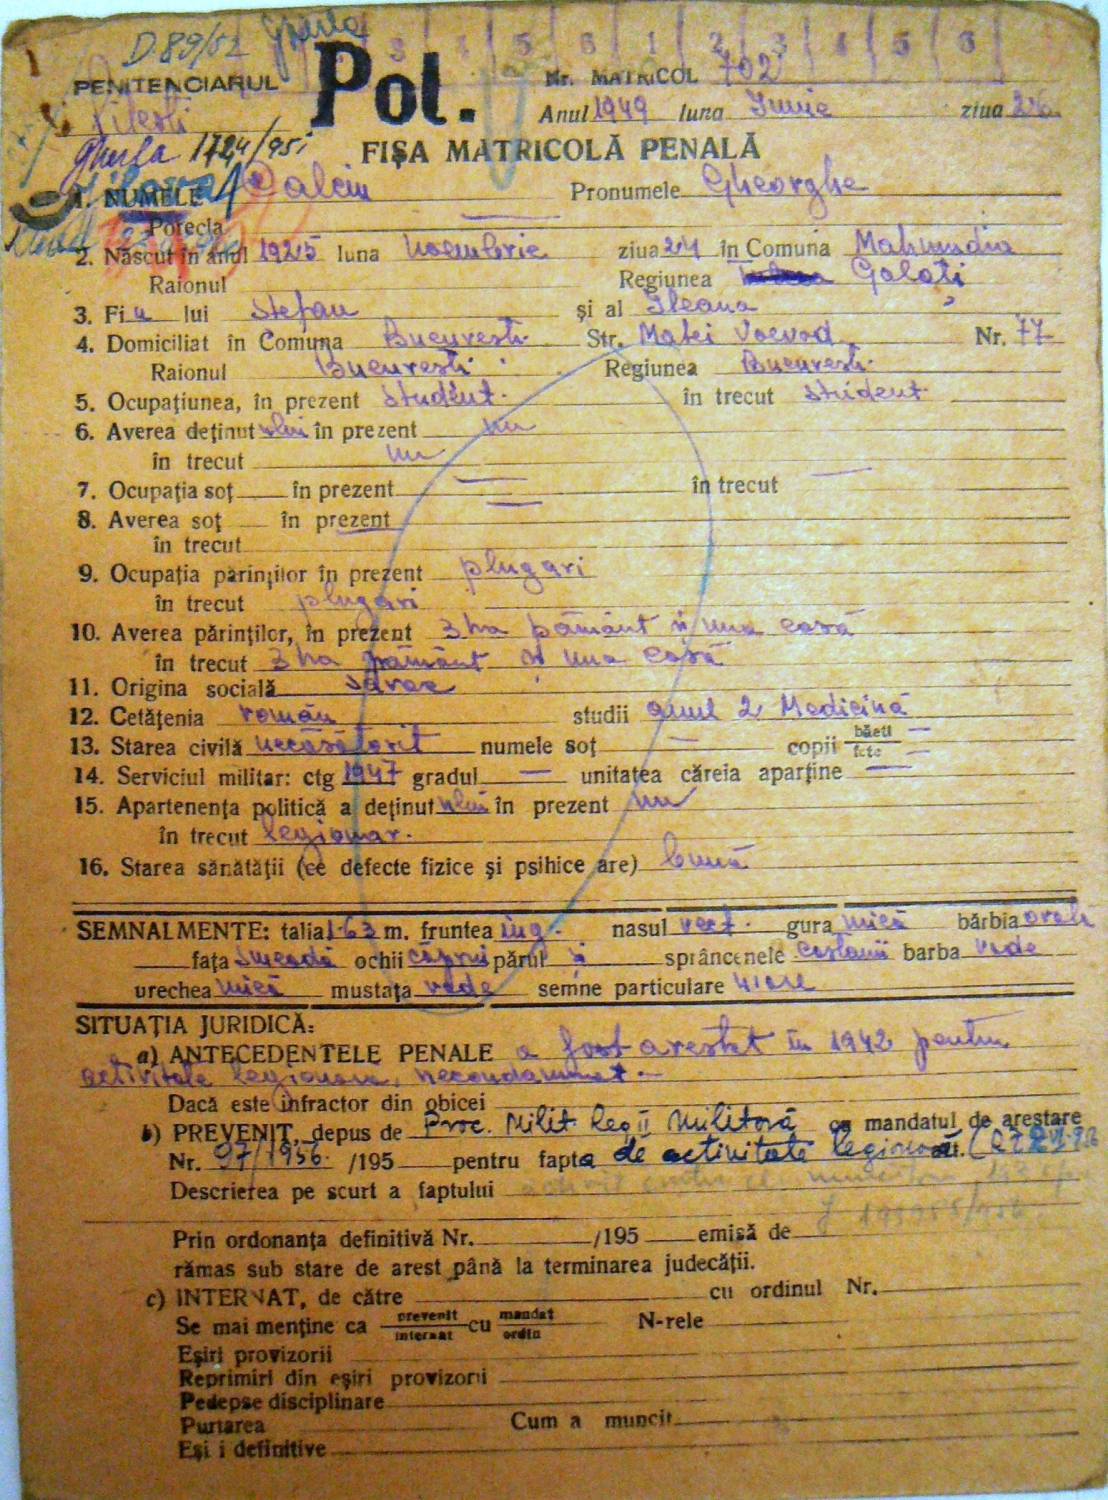 D 89/52 Gherla
3 4 5 6 1 2 3 4 5 6
PENITENCIARUL Pol. Nr. MATRICOL 702
Pitesti Anul 1949 luna Iunie ziua 26
Gherla 1724/951 FIŞA MATRICOLĂ PENALĂ
1. NUMELE Calciu Pronumele Gheorghe
Porecla —
2. Născut în anul 1925 luna Noembrie ziua 24 în Comuna Mahmudia
Raionul Regiunea Galati
3. Fiu lui Stefan şi al Ileana
4. Domiciliat în Comuna Bucuresti Str. Matei Voevod Nr. 77
Raionul Bucuresti Regiunea Bucuresti
5. Ocupaţiunea, în prezent Student în trecut Student
6. Averea deţinutului în prezent nu
în trecut nu
7. Ocupaţia soţ în prezent — în trecut —
8. Averea soţ în prezent —
în trecut
9. Ocupaţia părinţilor în prezent plugari
în trecut plugari
10. Averea părinţilor, în prezent 3 ha pământ și una casă
în trecut 3 ha pământ și una casă
11. Origina socială sărac
12. Cetăţenia român studii anul 2 Medicină
13. Starea civilă necăsătorit numele soţ — copii băeti — fete —
14. Serviciul militar: ctg 1947 gradul — unitatea căreia aparţine —
15. Apartenenţa politică a deţinutului în prezent nu
în trecut legionar.
16. Starea sănătăţii (ce defecte fizice şi psihice are) bună
SEMNALMENTE: talia 1.63 m. fruntea îng. nasul rect. gura mică bărbia ovală
faţa smeadă ochii căprui părul și sprâncenele castanii barba rade
urechea mică mustaţa rade semne particulare n'are
SITUAŢIA JURIDICĂ:
a) ANTECEDENTELE PENALE a fost arestat în 1942 pentru
activitate legionara, necondamnat.—
Dacă este infractor din obicei
b) PREVENIT, depus de Proc. Milit. Reg II Militară cu mandatul de arestare
Nr. 97/1956. /195 pentru fapta de activitate legionară.
Descrierea pe scurt a faptului
Prin ordonanţa definitivă Nr. /195 emisă de
rămas sub stare de arest până la terminarea judecăţii.
c) INTERNAT, de către cu ordinul Nr.
Se mai menţine ca prevenit internat cu mandat ordin N-rele
Eşiri provizorii
Reprimiri din eşiri provizorii
Pedepse disciplinare
Purtarea Cum a muncit
Eşi i definitive